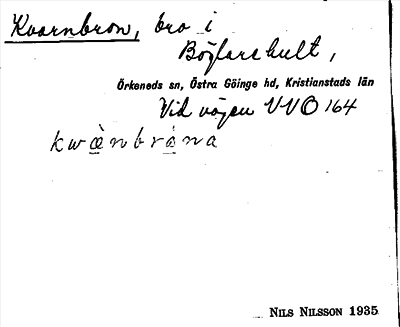 Kvarnbron, bro i
Böjlarehult,
Örkeneds sn, Östra Göinge hd, Kristianstads län
Vid vägen VVO 164
kwànbråna
NILS NILSSON 1935